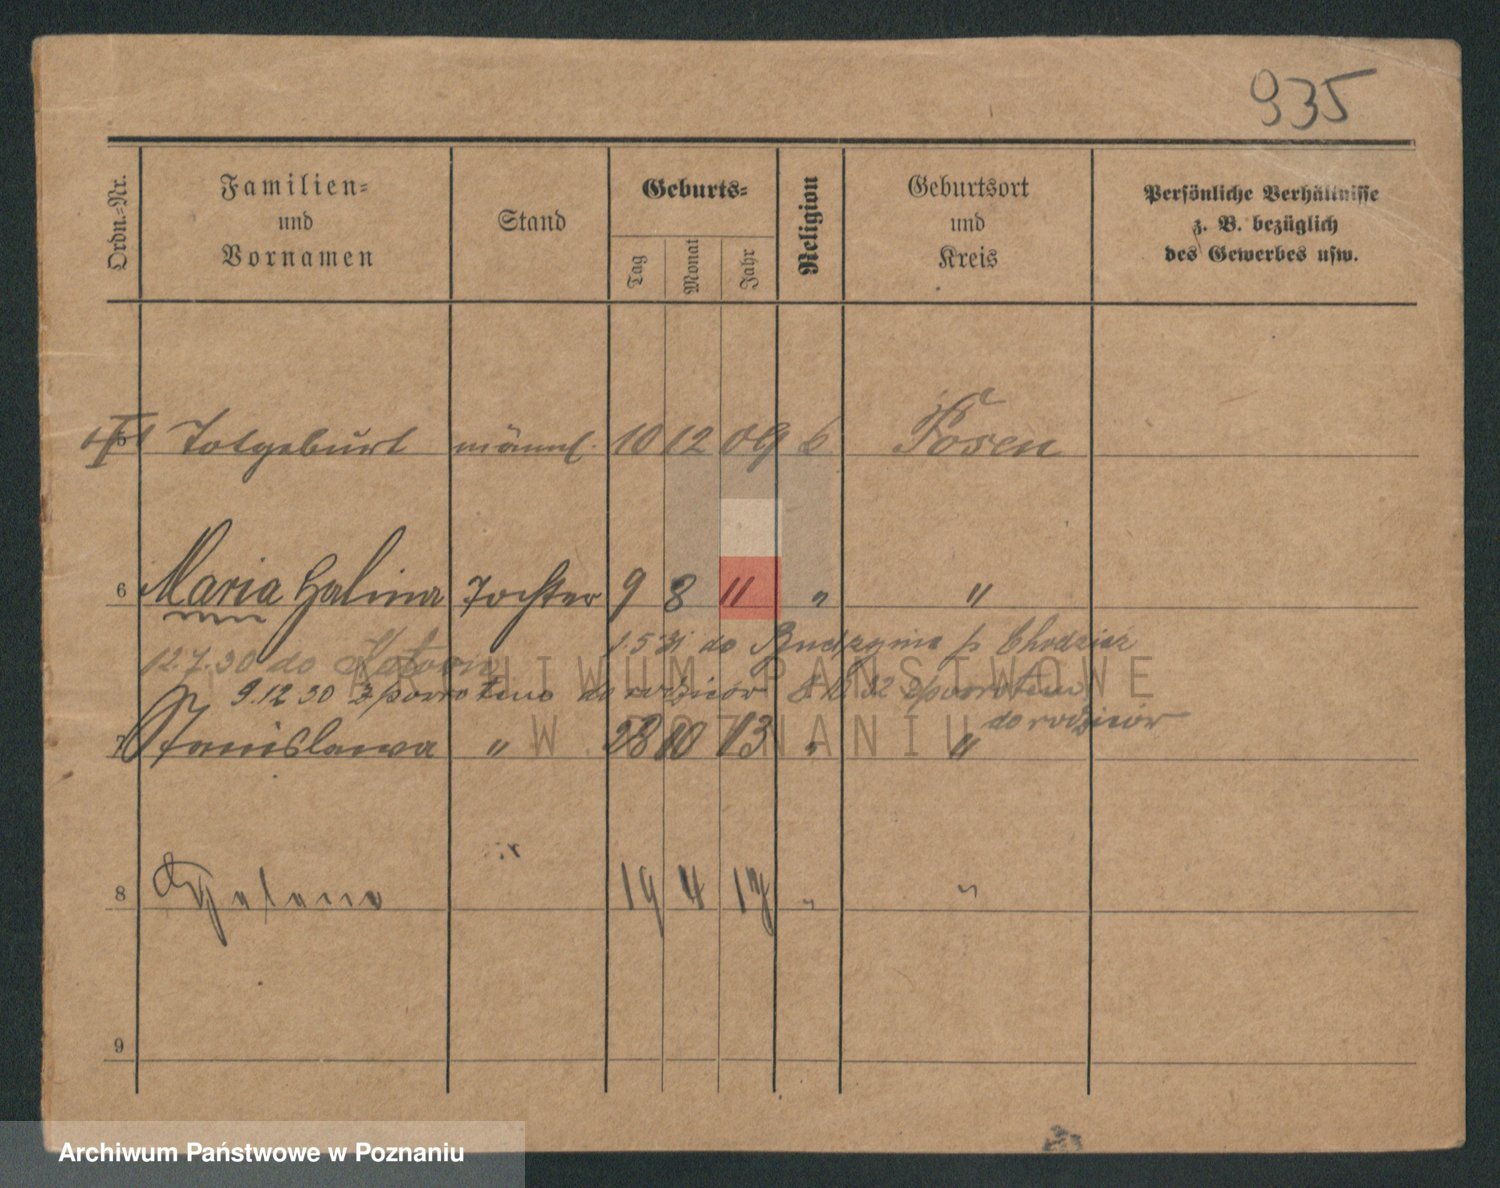 935
Ordn.=Nr.
Familien=
und
Vornamen
Stand
Geburts=
Tag
Monat
Jahr
Religion
Geburtsort
und
Kreis
Persönliche Verhältnisse
z. B. bezüglich
des Gewerbes usw.
5 Totgeburt männl. 10 12 09 k Posen
6 Maria Halina Tochter 9 8 11 " "
1.5 31 do Budzynia p. Chodzież
12.7.30 do
9.12 30 z powrotem do rodziców 8 10 32 z powrotem
do rodziców
7 Stanislawa " 28 10 13 " "
8 19 4 17 " "
9
ARCHIWUM PAŃSTWOWE
W POZNANIU
Archiwum Państwowe w Poznaniu